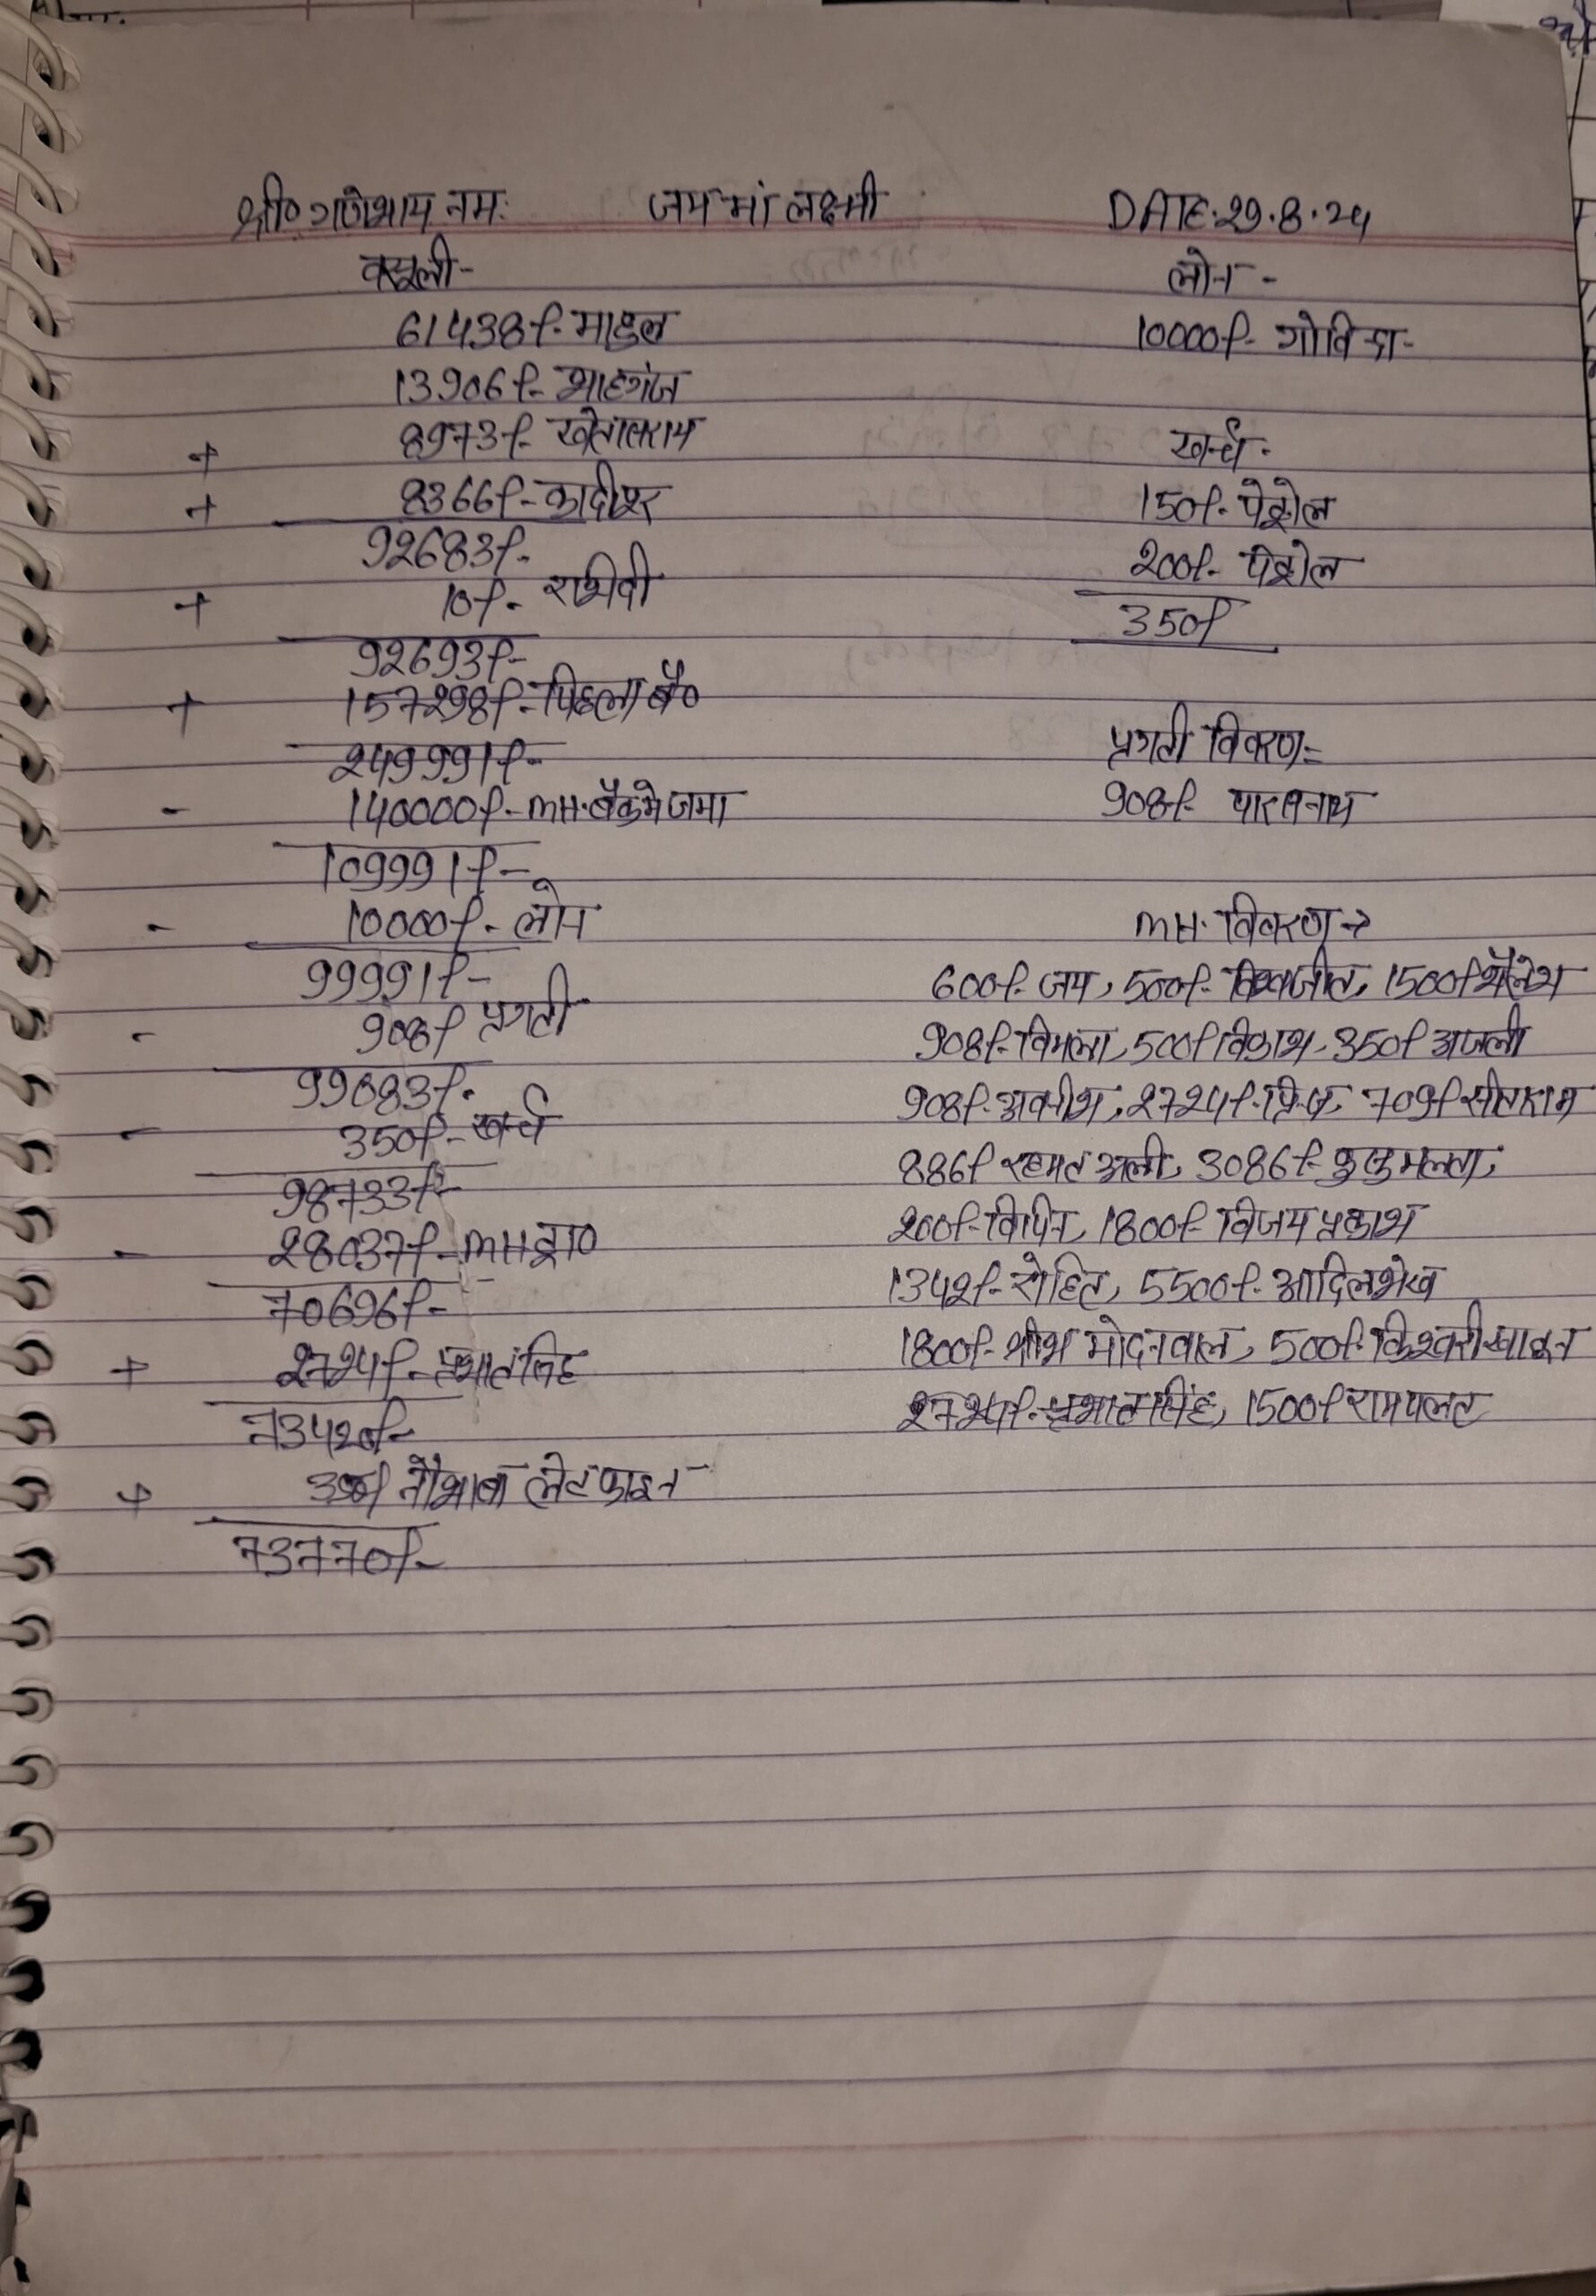 श्री० गणेशाय नमः जय मां लक्ष्मी DATE.29.8.24
वसूली-
61438/- माहुल
13906/- शाहगंज
+ 8973/- खेतासराय
+ 8366/- कादीपुर
92683/-
+ 10/-
92693/-
+ 157298/- पिछला बै०
249991/-
- 140000/- MH. बैंक मे जमा
109991/-
- 10000/- लोन
99991/-
- 908/ प्रगती
99083/-
- 350/- खर्च
98733/-
- 28037/- MH द्वा०
70696/-
+ 2724/- प्रभात सिंह
73420/-
+ 350/ नौशाबा लेट फाइन
73770/-
लोन -
10000/- गोविन्दा-
खर्च -
150/- पेट्रोल
200/- पेट्रोल
350/
प्रगती विवरण=
908/- पारसनाथ
MH. विवरण→
600/- जय, 500/- विश्वजीत, 1500/ शैलेश
908/- विमला, 500/ विकाश, 350/ अंजली
908/- अवनीश, 2724/- प्रिंस, 709/ सीताराम
886/ रहमत अली, 3086/- कुसुमलता,
200/- विपिन, 1800/- विजय प्रकाश
1342/- रोहित, 5500/- आदिल शेख
1800/- शोभ मोदनवाल, 500/- किश्वरी खातून
2724/- प्रभात सिंह, 1500/ रामपलट